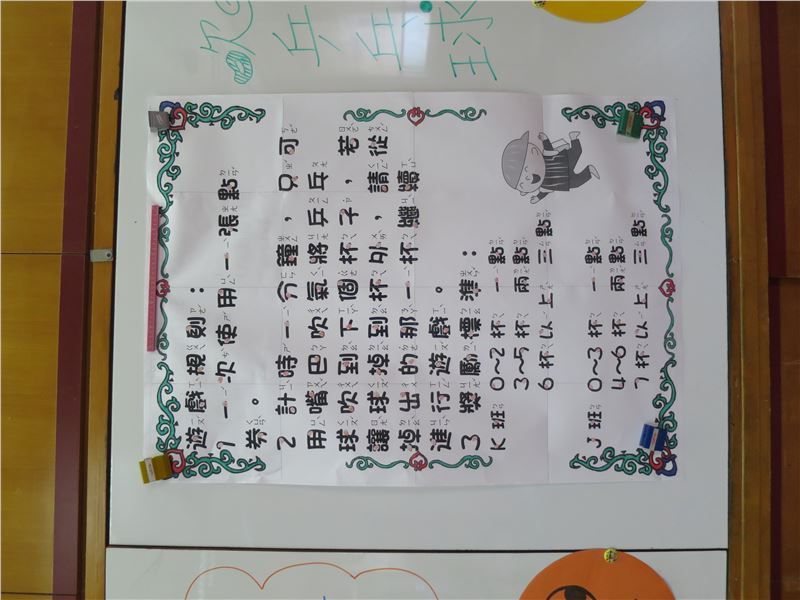 吹乒乓球
遊戲規則：
1 一次使用一張點
券。
2 計時一分鐘，只可
用嘴巴吹氣將乒乓
球吹到下個杯子，若
讓球掉到杯外，請從
掉出的那一杯繼續
進行遊戲。
3 獎勵標準：
K班 0~2杯 一點
3~5杯 兩點
6杯以上 三點
J班 0~3杯 一點
4~6杯 兩點
7杯以上 三點